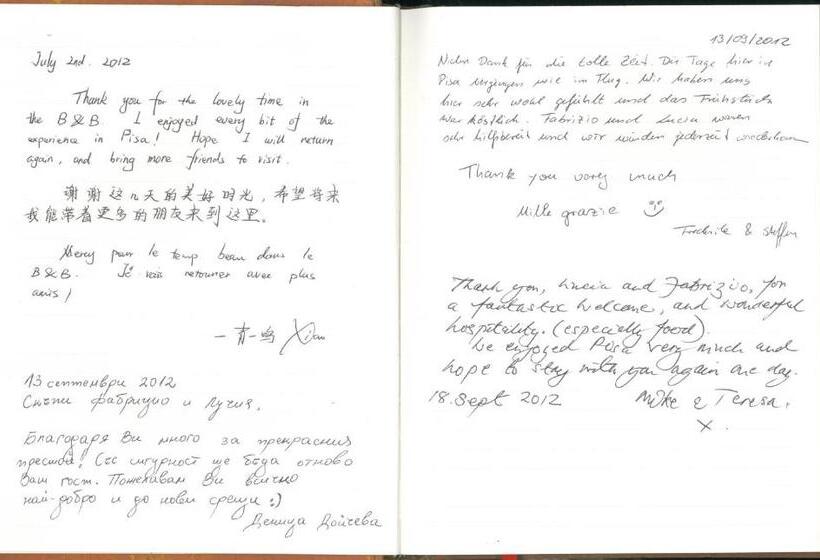 July 2nd. 2012
Thank you for the lovely time in
the B&B. I enjoyed every bit of the
experience in Pisa! Hope I will return
again, and bring more friends to visit.
谢谢这几天的美好时光，希望将来
我能带着更多的朋友来到这里。
Mercy pour le temp beau dans le
B&B. Je vais retourner avec plus
amis!
13 септември 2012
Скъпи Фабрицио и Лучия,
Благодаря Ви много за прекрасния
престой! Със сигурност ще бъда отново
Ваш гост. Пожелавам Ви всичко
най-добро и до нови срещи :)
Деница Дойчева
13/09/2012
Vielen Dank für die tolle Zeit. Die Tage hier in
Pisa vergingen wie im Flug. Wir haben uns
hier sehr wohl gefühlt und das Frühstück
war köstlich. Fabrizio und Lucia waren
sehr hilfsbereit und wir würden jederzeit wiederkommen
Thank you very much
Mille grazie
& Steffen
Thank you, Lucia and Fabrizio, for
a fantastic welcome, and wonderful
hospitality. (especially food).
We enjoyed Pisa very much and
hope to stay with you again one day.
18. Sept 2012 Mike & Teresa.
x.